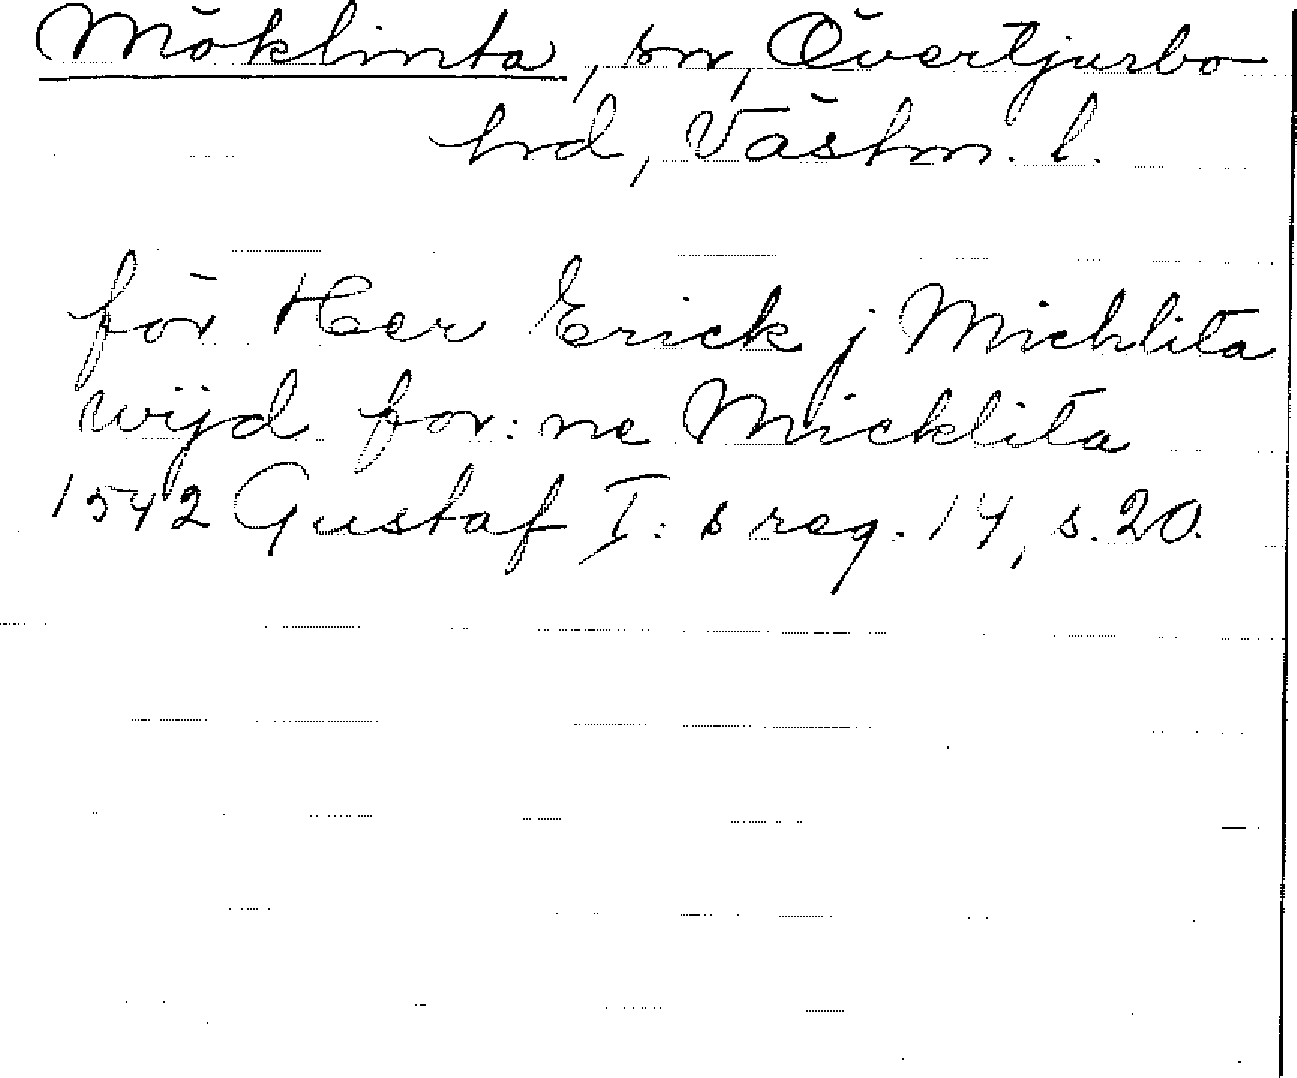 Möklinta, sn, Övertjurbo
hrd, Västm. l.
för Her Erick j Michlita
wijd for: ne Micklita
1542 Gustaf I: s reg. 14, s. 20.